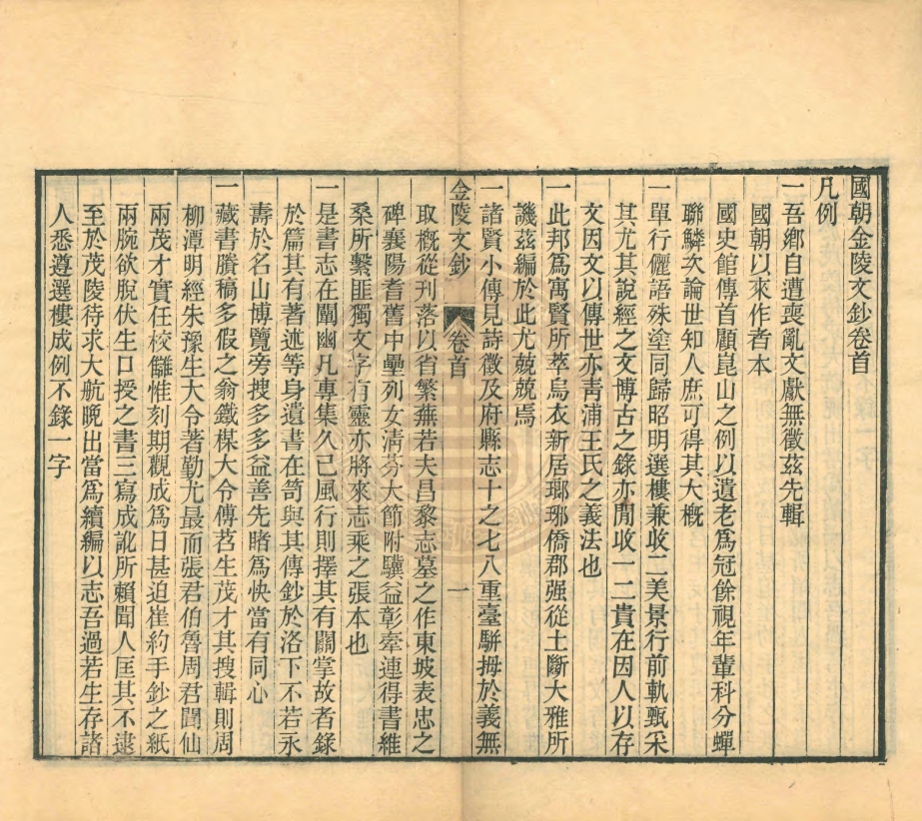 國朝金陵文鈔卷首
凡例
一吾鄉自遭喪亂文獻無徵茲先輯
國朝以來作者本
國史館傳首顧崑山之例以遺老爲冠餘視年輩科分蟬
聯鱗次論世知人庶可得其大槪
一單行儷語殊塗同歸昭明選樓兼收二美景行前軌甄采
其尤其說經之文博古之錄亦閒收一二貴在因人以存
文因文以傳世亦靑浦王氏之義法也
一此邦爲寓賢所萃烏衣新居瑯琊僑郡强從土斷大雅所
譏茲編於此尤兢兢焉
一諸賢小傳見詩徵及府縣志十之七八重臺駢拇於義無
金陵文鈔 卷首 一
取槪從刋落以省繁蕪若夫昌黎志墓之作東坡表忠之
碑襄陽耆舊中壘列女淸芬大節附驥益彰牽連得書維
桑所繫匪獨文字有靈亦將來志乘之張本也
一是書志在闡幽凡專集久已風行則擇其有關掌故者錄
於篇其有著述等身遺書在笥與其傳鈔於洛下不若永
壽於名山博覽旁搜多多益善先睹爲快當有同心
一藏書賸稿多假之翁鐵楳大令傅苕生茂才其搜輯則周
柳潭明經朱豫生大令著勤尤最而張君伯魯周君閬仙
兩茂才實任校讎惟刻期觀成爲日甚迫崔約手鈔之紙
兩腕欲脫伏生口授之書三寫成訛所賴聞人匡其不逮
至於茂陵待求大航晩出當爲續編以志吾過若生存諸
人悉遵選樓成例不錄一字